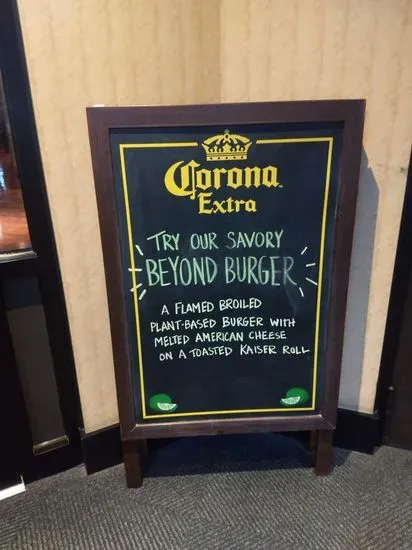 Corona
Extra
TRY OUR SAVORY
BEYOND BURGER
A FLAMED BROILED
PLANT-BASED BURGER WITH
MELTED AMERICAN CHEESE
ON A TOASTED KAISER ROLL